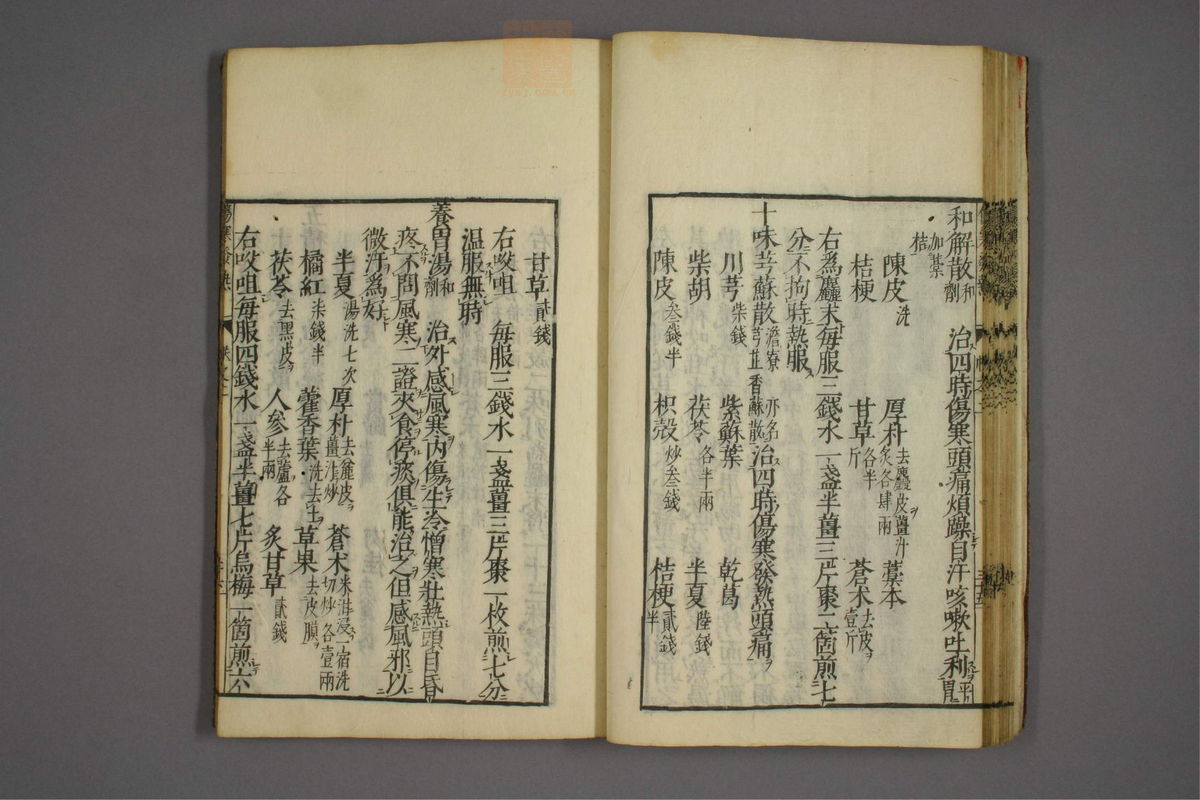 和解散和劑 治四時傷寒頭痛煩躁自汗咳嗽吐利平胃
加藁桔
陳皮洗 厚朴去麤皮薑汁炙各肆兩 藁本
桔梗 甘草各半斤 蒼朮去皮壹斤
右為麤末每服三錢水一盞半薑三片棗二箇煎七
分不拘時熱服
十味芎蘇散澹寮亦名芎芷香蘇散治四時傷寒發熱頭痛
川芎柒錢 紫蘇葉 乾葛
柴胡 茯苓各半兩 半夏陸錢
陳皮叁錢半 枳殼炒叁錢 桔梗貳錢半
甘草貳錢
右㕮咀 每服三錢水一盞薑三片棗一枚煎七分
温服無時
養胃湯和劑 治外感風寒内傷生冷憎寒壯熱頭目昏
疼不問風寒二證夾食停痰俱能治之但感風邪以
微汗為好
半夏湯洗七次 厚朴去麄皮薑汁炒 蒼朮米泔浸一宿洗切炒各壹兩
橘紅柒錢半 藿香葉洗去土 草果去皮膜
茯苓去黑皮 人參去蘆各半兩 炙甘草貳錢
右㕮咀每服四錢水一盞半薑七片烏梅一箇煎六